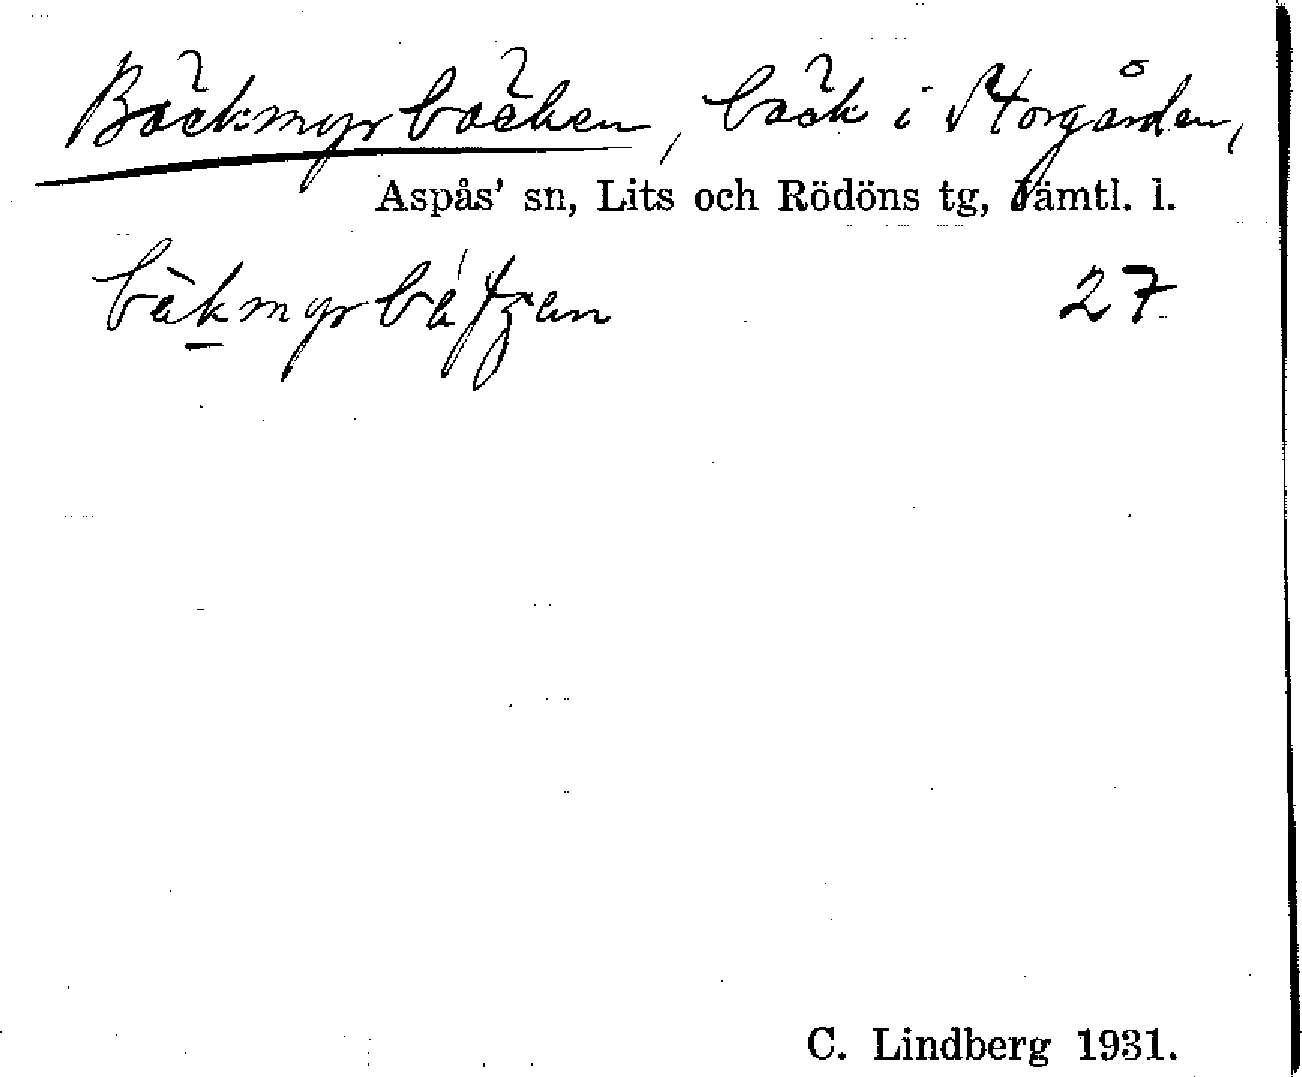 Bäckmyrbäcken, bäck i Storgården,
Aspås' sn, Lits och Rödöns tg, Jämtl. l.
27
C. Lindberg 1931.